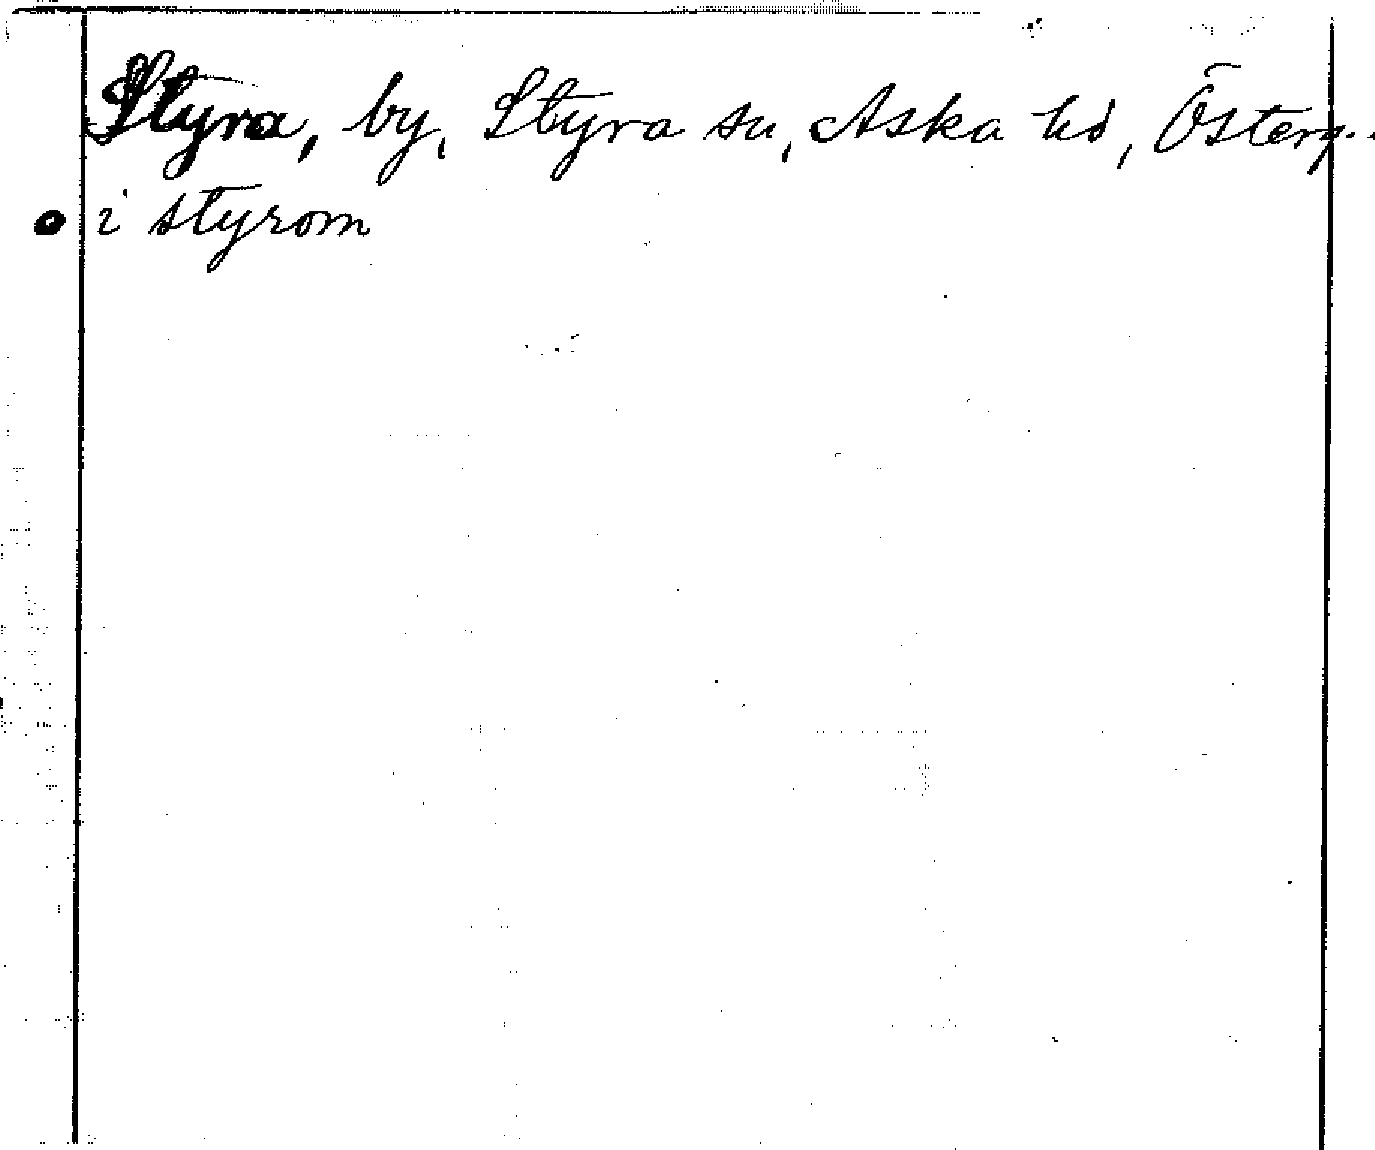 Styra, by, Styra sn, Aska hd, Österg..
i styrom